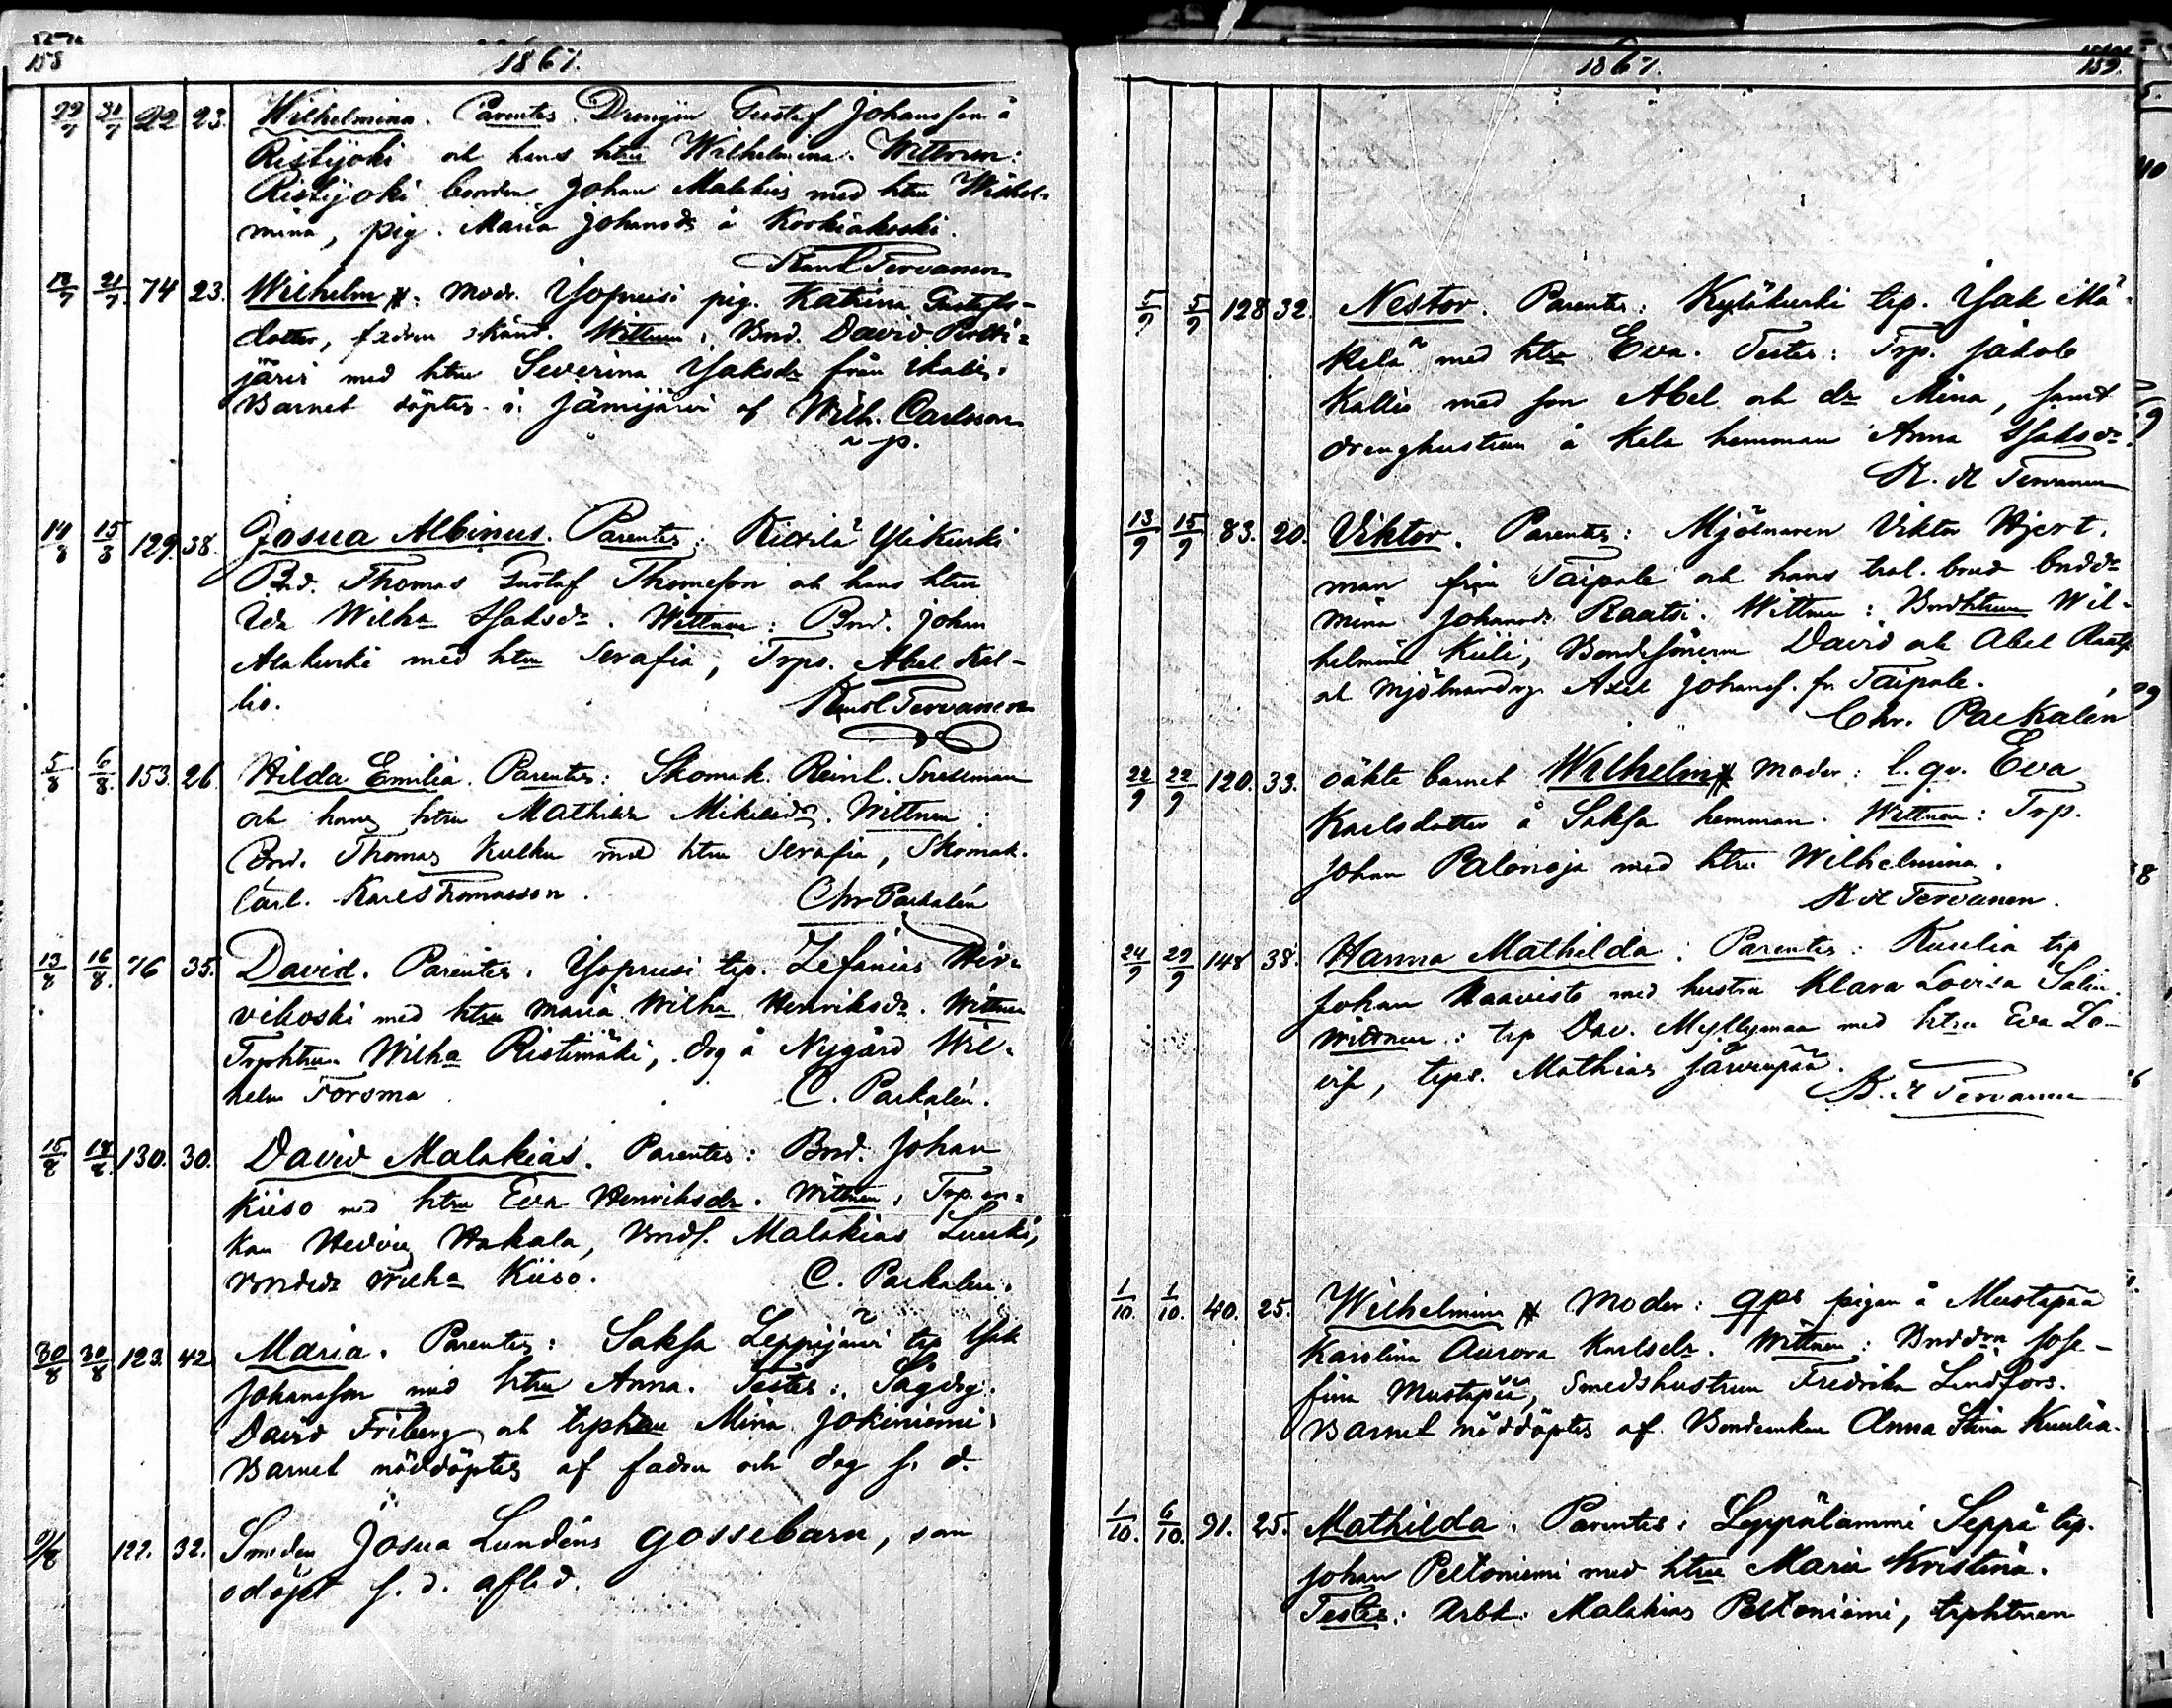 158
1867.
29/7 31/7 22 23. Wilhelmina. Parentes. Drengen Gustaf Johansson å
Ristijoki och hans htru Wilhelmina. Wittnen:
Ristijoki bonden Johan Malakias med htru Wilhel-
mina, pig. Maria Johansdr å Koskiakoski.
Karl Tervanen
18/7 21/7 74 23. Wilhelm #. Modr. Yopruusi pig. Katrina Gustafs-
dotter, fadren okänd. Wittnen: Bnd. David Poltti-
järvi med htru Severina Isaksdr från
Barnet döptes i Jämijärvi af Wilh. Carlsson
v. p.
14/8 15/8 129. 38. Josua Albinus. Parentes: Rixilä Ylikurki
Bnd. Thomas Gustaf Thomeson och hans htru
Ida Wilha Isaksdr. Wittnen: Bnd. Johan
Alakurki med htru Serafia, Trps. Abel Kal-
lio. Karl Tervanen
5/8 6/8. 153. 26 Hilda Emilia. Parentes: Skomak. Reinh. Snellman
och hans htru Mathilda Mikelsdr. Wittnen:
Bnd. Thomas Kulku med htru Serafia, Skomak.
lärl. Karl Thomasson. Chr Paekalén
13/8 16/8. 76 35. David. Parentes. Yopruusi trp. Zefanias Hir-
vikoski med htru Maria Wilha Henriksdr. Wittnen
Trphtrun Wilha Ristimäki, drg å Nygård Wil-
helm Forsma C. Paekalén.
15/8 18/8. 130. 30. David Malakias. Parentes: Bnd. Johan
Kiiso med htru Eva Henriksdr. Wittnen: Trp. en-
kan Hedvig Hakala, Bnds. Malakias Luuki,
Bnddr Wilha Kiiso. C. Paekalén.
30/8 30/8 123. 42 Maria. Parentes: Saksa Leppijärvi trp Isak
Johansson med htru Anna. Testes: Sågdrg.
David Friberg och trphtru Mina Jokiniemi.
Barnet nöddöptes af fadren och dog s. d.
9/8 122. 32. Smeden Josua Lundéns gossebarn, som
odöpt s. d. afled.
1867.
159.
5/9 5/9 128 32. Nestor. Parentes: Kyläkurki trp. Isak Mä-
kelä med htru Eva. Testes: Trp. Jakob
Kallio med son Abel och dr Mina, samt
drenghustrun å Kela hemman Anna Isaksdr.
K. H Tervanen
13/9 15/9 83. 20. Viktor. Parentes: Mjölnaren Viktor Hjert-
man från Taipale och hans trol. brud bnddr
Mina Johansdr Raatsi. Wittnen: Bndhtrun Wil-
helmina Kiili, Bondesönerna David och Abel Raats
och Mjölnardrg Axel Johanss. fr. Taipale.
Chr. Paekalén
22/9 22/9 120. 33. oäkta barnet Wilhelm # Moder: l. qv. Eva
Karlsdotter å Saksa hemman. Wittnen: Trp.
Johan Palonoja med htru Wilhelmina.
K H Tervanen.
24/9 29/9 148 38. Hanna Mathilda. Parentes: Kuulia trp
Johan Haavisto med hustru Klara Lovisa Salin.
Wittnen: trp Dav. Myllymaa med htru Eva Lo-
vis, trps. Mathias Jäurupää.
K. H Tervanen
1/10. 1/10. 40. 25. Wilhelmina # Moder: qps pigan å Mustapää
Karolina Aurora Karlsdr. Wittnen: Bnddrn Jose-
fina Mustapää, Smedshustrun Fredrika Lindfors.
Barnet nöddöptes af Bondeenkan Anna Stina Kuulia.
1/10. 6/10. 91. 25. Mathilda. Parentes: Leppälammi Seppä trp.
Johan Peltoniemi med htru Maria Kristina.
Testes: Arbk. Malakias Peltoniemi, trphtrun